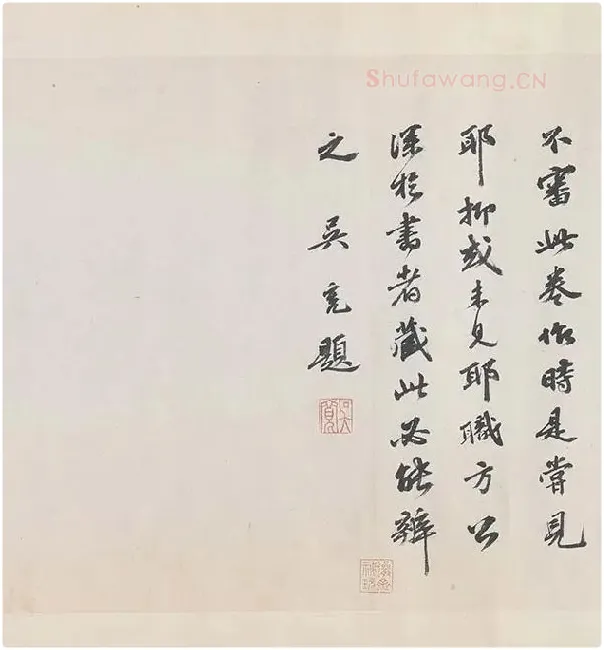 Shufawang.CN
不審此卷作時是嘗見
耶抑或未見耶職方公
深於書者藏此必能辨
之 吳亮題